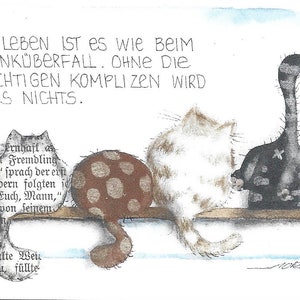 LEBEN IST ES WIE BEIM
NKÜBERFALL. OHNE DIE
CHTIGEN KOMPLIZEN WIRD
S NICHTS.
Ernhaft a
Fremdling
" sprach der erst
dern folgten i
Euch, Mann,"
von seinem
fte Wei
füllte